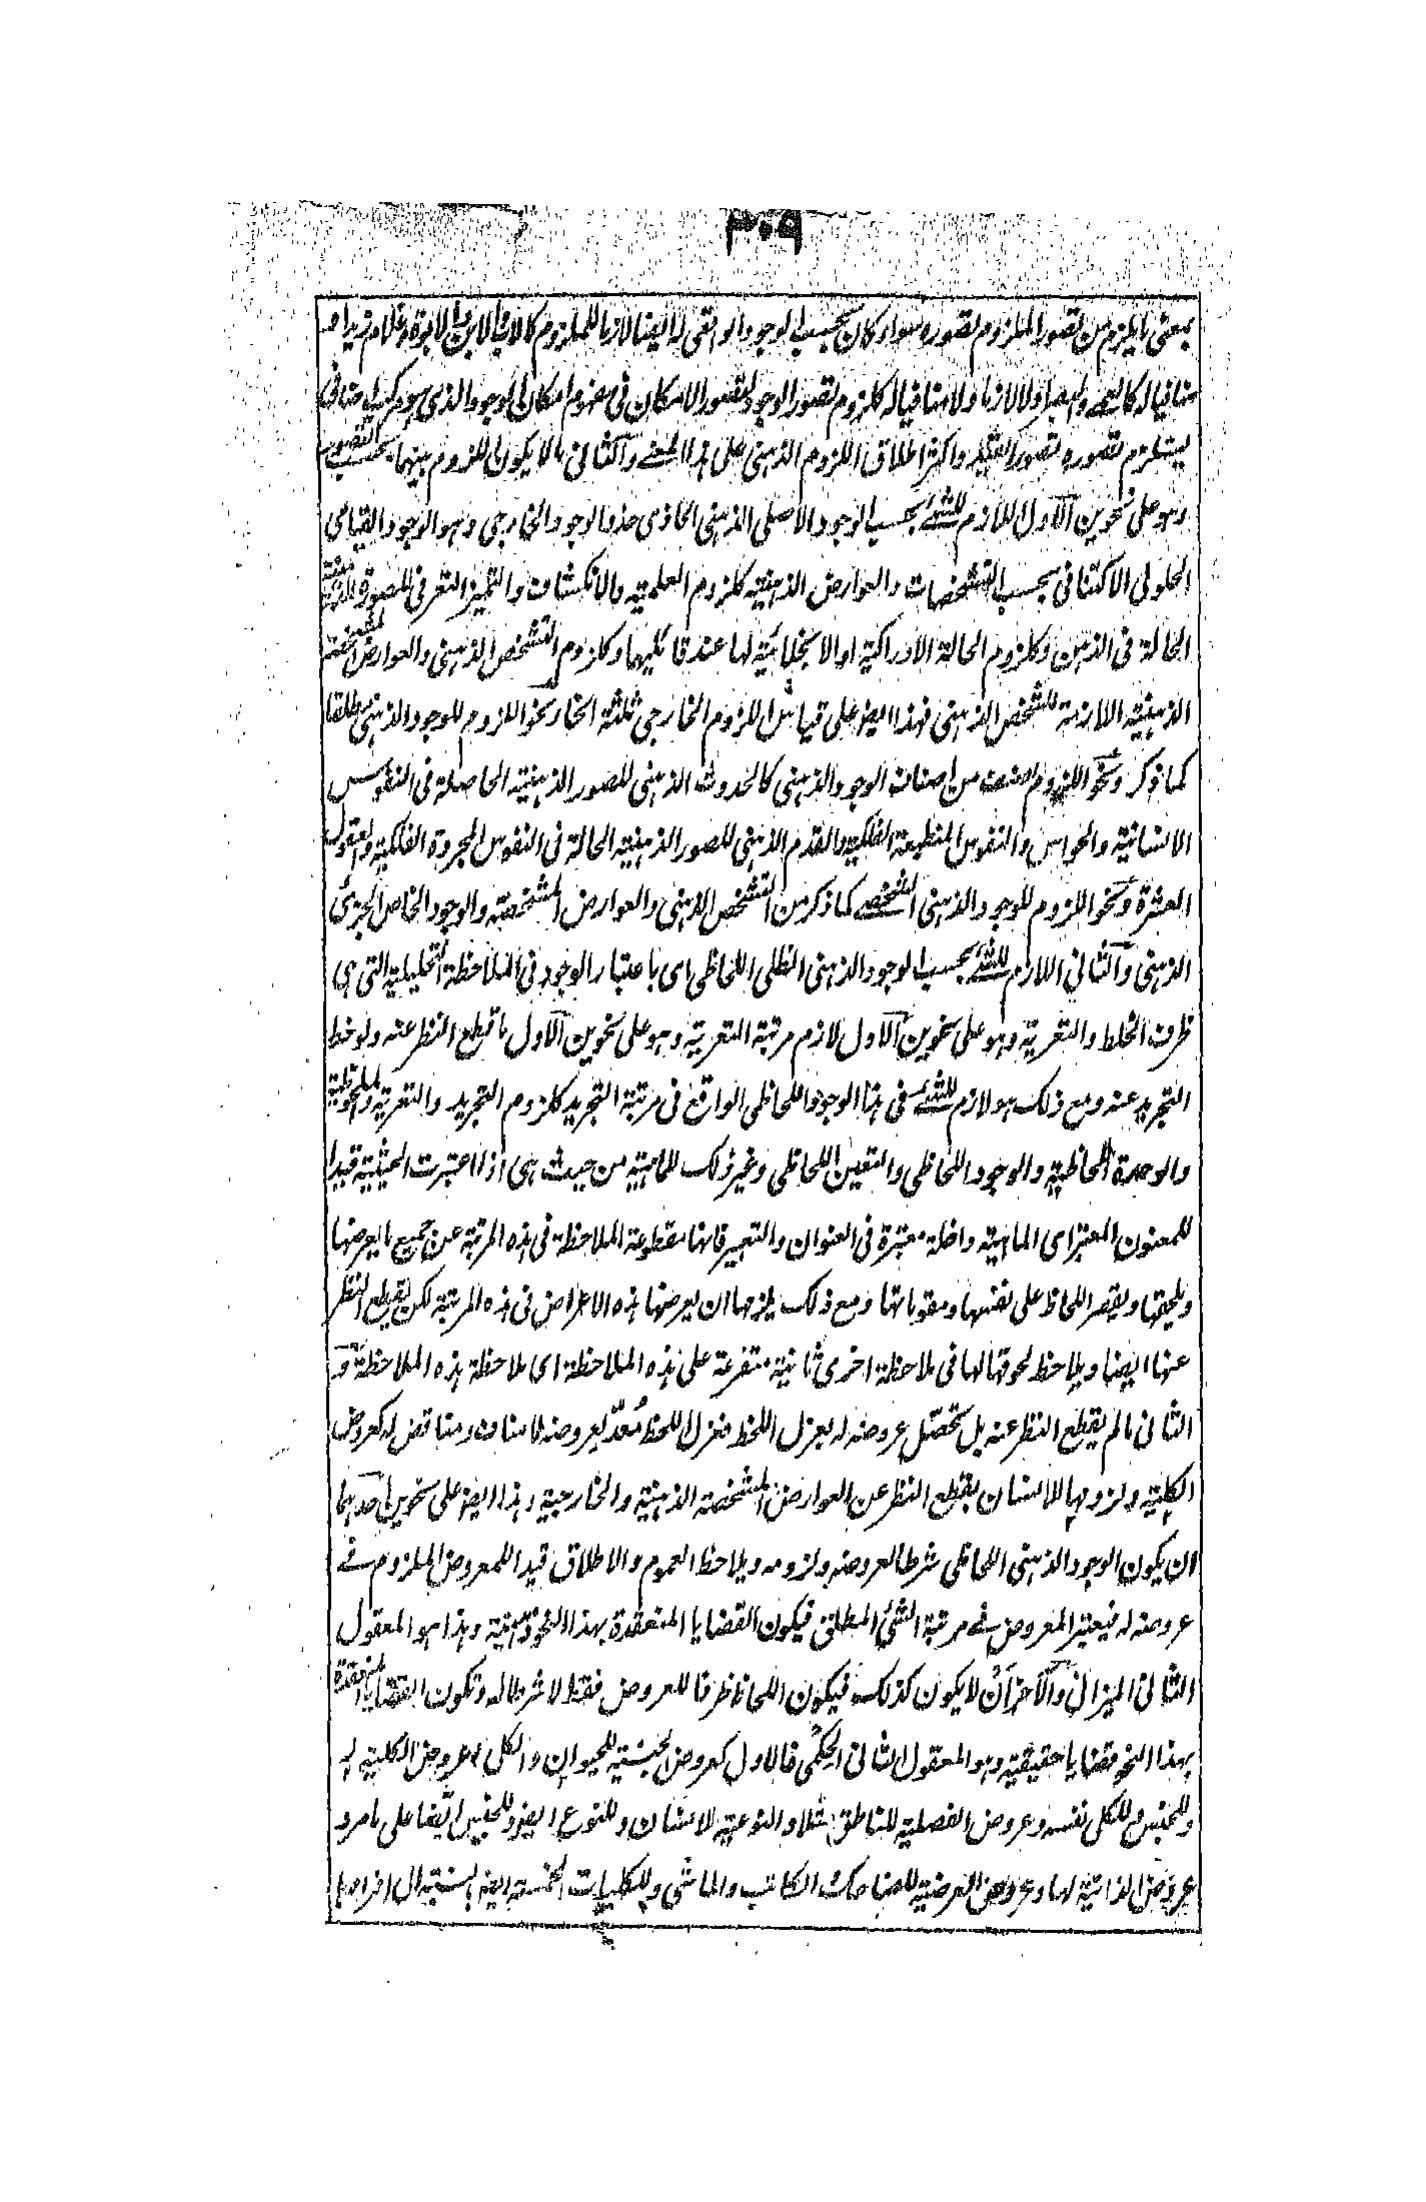 ٣٠٩
بمعنى ما يلزم من تصور الملزوم تصوره سواء كان بحسب الوجود الواقعي له ايضا لازما للملزوم كالاب والابن والابوة وغلام زيد او
منافيا له كالعمى والبصر او لا لازما ولا منافيا له كلزوم تصور الوجود لتصور الامكان في مفهوم امكان الوجود الذي هو مركب اضافي
يستلزم تصوره تصور القيد واكثر اطلاق اللزوم الذهني على هذا المعنى والثاني ما لا يكون اللزوم بينهما بحسب التصور
وهو على نحوين الاول اللازم للشئ بحسب الوجود الاصلي الذهني الحاذي حذو الوجود الخارجي وهو الوجود القيامي
الحلولي الاكتنافي بحسب التشخصات والعوارض الذهنية كلزوم العلمية والانكشاف والتميز التعرفي للصورة الذهنية
الحالة في الذهن وكلزوم الحالة الادراكية او الانجلائية لها عند قائليها وكلزوم التشخص الذهني والعوارض المشخصة
الذهنية اللازمة للشخص الذهني فهذا ايضا على قياس اللزوم الخارجي ثلثة انحاء نحو اللزوم للوجود الذهني مطلقا
كما ذكر ونحو اللزوم لصنف من اصناف الوجود الذهني كالحدوث الذهني للصور الذهنية الحاصلة في النفوس
الانسانية والحواس والنفوس المنطبعة الفلكية والقدم الذهني للصور الذهنية الحالة في النفوس المجردة الفلكية والعقول
العشرة ونحو اللزوم للوجود الذهني الشخصي كما ذكر من التشخص الذهني والعوارض المشخصة والوجود الخاص الجزئي
الذهني والثاني اللازم للشئ بحسب الوجود الذهني الظلي اللحاظي اى باعتبار الوجود في الملاحظة التحليلية التي هي
ظرف الخلط والتعرية وهو على نحوين الاول لازم مرتبة التعرية وهو على نحوين الاول ما قطع النظر عنه ولوحظ
التجريد عنه ومع ذلك هو لازم للشئ في هذا الوجود اللحاظي الواقع في مرتبة التجريد كلزوم التجريد والتعرية والملحوظية
والوحدة اللحاظية والوجود اللحاظي والتعين اللحاظي وغير ذلك للماهية من حيث هي اذا اعتبرت الحيثية قيدا
للمعنون المعتبر اى الماهية داخلة معتبرة في العنوان والتعبير فانها مقطوعة الملاحظة في هذه المرتبة عن جميع ما يعرضها
ويلحقها ويقصر اللحاظ على نفسها ومقوماتها ومع ذلك يلزمها ان يعرضها هذه الاعراض في هذه المرتبة لكن يقطع النظر
عنها ايضا ويلاحظ لحوقها لها في ملاحظة اخرى ثانية متفرعة على هذه الملاحظة اى ملاحظة هذه الملاحظة و
الثاني ما لم يقطع النظر عنه بل تحصل عروضه له بعزل اللحظ فعزل اللحظ مُعدّ لعروضه لا مناف ومناقض له كعروض
الكلية ولزومها للانسان بقطع النظر عن العوارض المشخصة الذهنية والخارجية وهذا ايضا على نحوين احدهما
ان يكون الوجود الذهني اللحاظي شرطا لعروضه ولزومه ويلاحظ العموم والاطلاق قيدا للمعروض الملزوم في
عروضه له فيعتبر المعروض في مرتبة الشئ المطلق فيكون القضايا المنعقدة بهذا النحو ذهنية وهذا هو المعقول
الثاني الميزاني والآخر اَنْ لا يكون كذلك فيكون اللحاظ ظرفا للعروض فقط لا شرطا له وتكون القضايا المنعقدة
بهذا النحو قضايا حقيقية وهو المعقول الثاني الحكمي فالاول كعروض الجنسية للحيوان والكلى وعروض الكلية له
وللجنس وللكلى نفسه وعروض الفصلية للناطق مثلا والنوعية للانسان وللنوع ايضا وللجنس ايضا على ما مر و
عروض الذاتية لها وعروض العرضية للضاحك الكاتب والماشي وللكليات الخمسة ايضا باستبدال افرادها